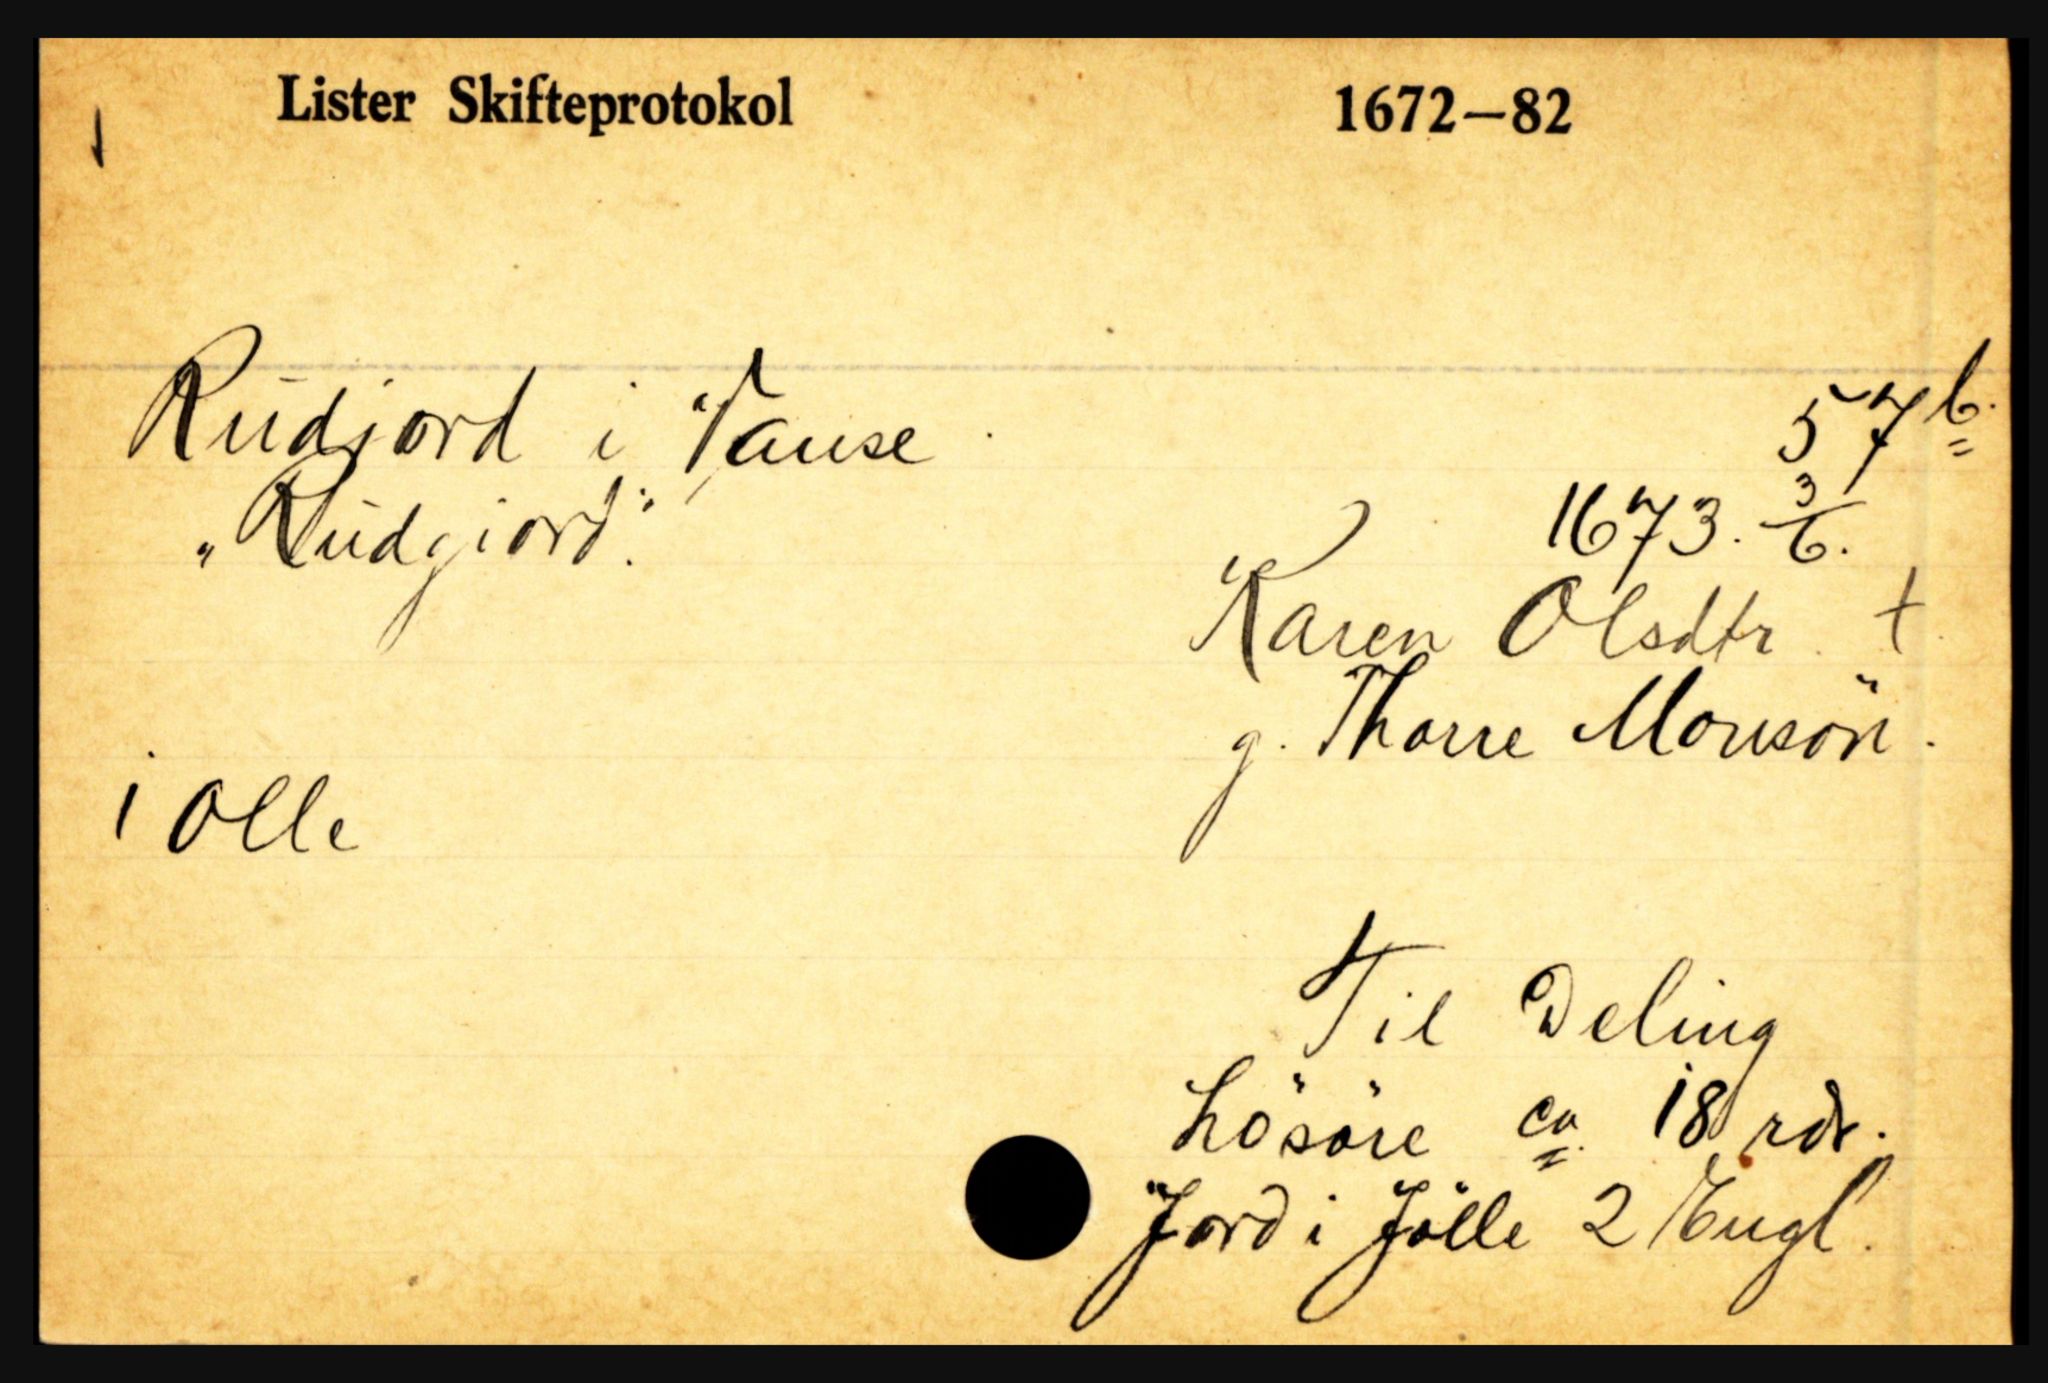 Lister Skifteprotokol 1672–82
Rudjord i Vanse
57 b.
"Rudgiord".
1673. 3/6.
Karen Olsdtr †
g. Thorre Monsön.
1 Olle
Til Deling
Lösöre ca. 18 rdr.
Jord i Jölle 2 Eugl.